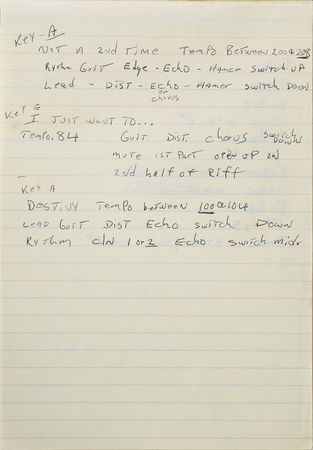 Key - A
Not n 2nd Time Tempo Between 200 & 208
Rythm Guit Edge - Echo - Hamer switch up
Lead - Dist - Echo - Hamer switch Down
or
chorus
Key E
I Just want To...
Tempo. 84 Guit Dist. chorus switch Down
mute 1st Part open up on
2nd half of Riff
Key A
Destiny Tempo between 100 & 104
Lead Guit Dist Echo switch Down
Rythm cln 1 or 2 Echo switch midr